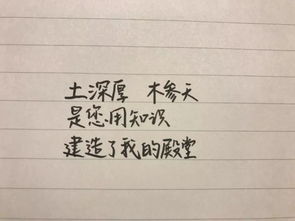 土深厚 木参天
是您用知识
建造了我的殿堂